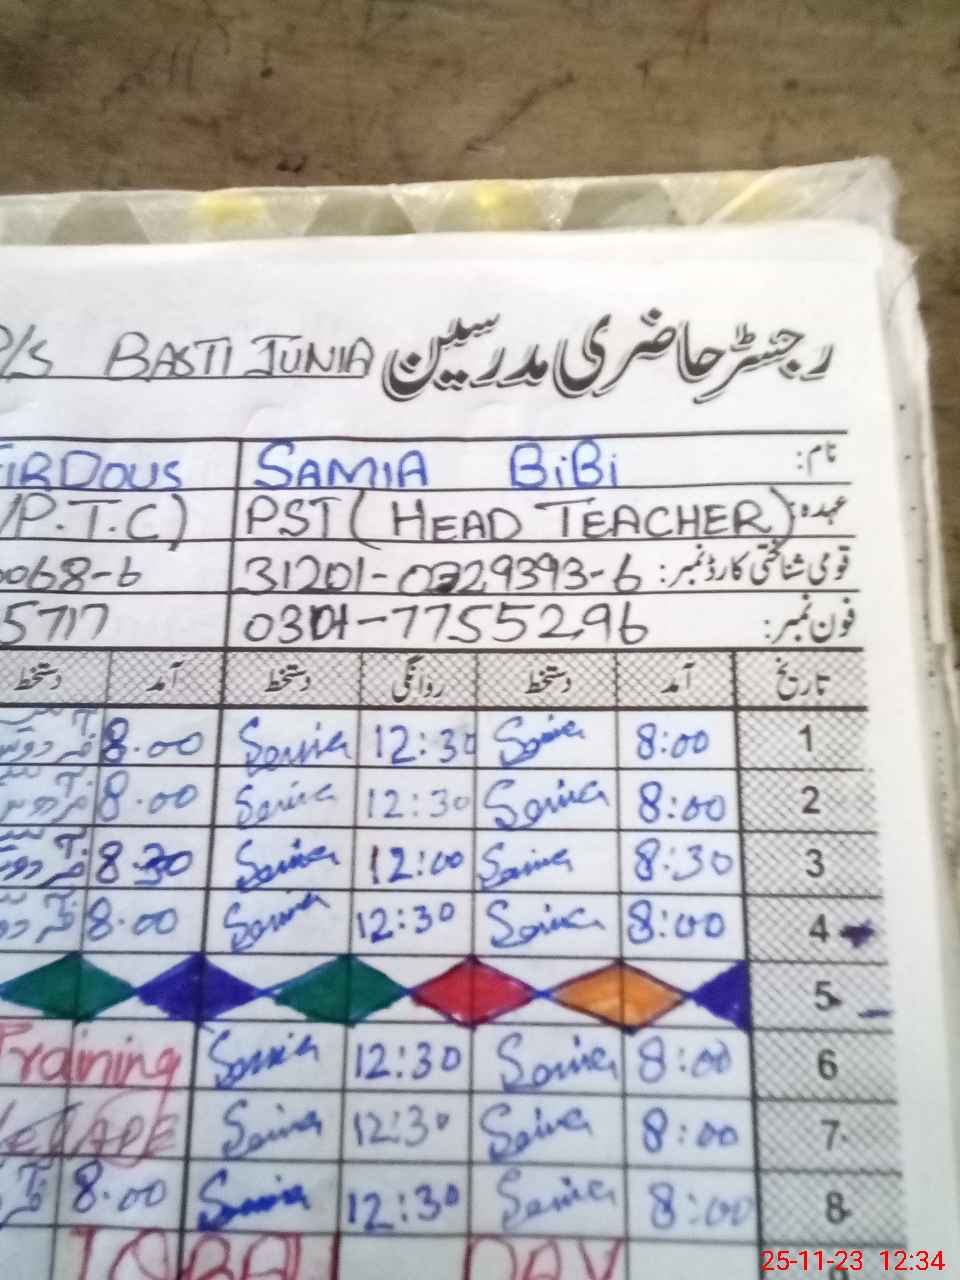 P/S BASTI JUNIA رجسٹر حاضری مدرسین
FIRDOUS SAMIA BiBi نام:
/P.T.C) PST (HEAD TEACHER) عہدہ:
0068-6 31201-0329393-6 قومی شناختی کارڈ نمبر:
5717 0301-7755296 فون نمبر:
تاریخ آمد دستخط روانگی دستخط آمد دستخط
1 8:00 Samia 12:30 Samia 8.00 فردوس
2 8:00 Samia 12:30 Samia 8.00 فردوس
3 8:30 Samia 12:00 Samia 8.30 فردوس
4 8:00 Samia 12:30 Samia 8.00 فردوس
5
6 8:00 Samia 12:30 Samia Training
7 8:00 Samia 12:30 Samia
8 8:00 Samia 12:30 Samia 8.00
IQBAL DAY
25-11-23 12:34